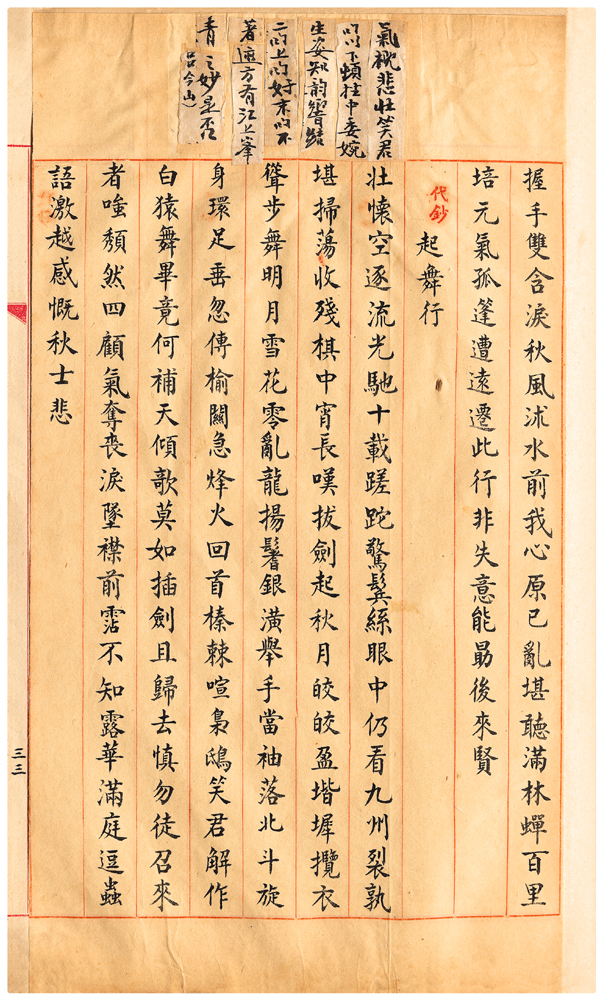 氣概悲壯笑君
以下頓挫中委婉
生姿知韵響結
二的上的好末的不
著遮方有江上峯
青之妙是否
(呂今山)
握手雙含淚秋風沭水前我心原已亂堪聽滿林蟬百里
培元氣孤篷遭遠遷此行非失意能勗後來賢
代鈔
起舞行
壯懷空逐流光馳十載蹉跎驚鬓絲眼中仍看九州裂孰
堪掃蕩收殘棋中宵長嘆拔劍起秋月皎皎盈堦墀攬衣
聳步舞明月雪花零亂龍揚鬐銀潢舉手當袖落北斗旋
身環足垂忽傳榆關急烽火回首榛棘喧梟鴟笑君解作
白猿舞畢竟何補天傾歌莫如插劍且歸去慎勿徒召來
者嗤頹然四顧氣奪喪淚墜襟前霑不知露華滿庭逗蟲
語激越感慨秋士悲
三三